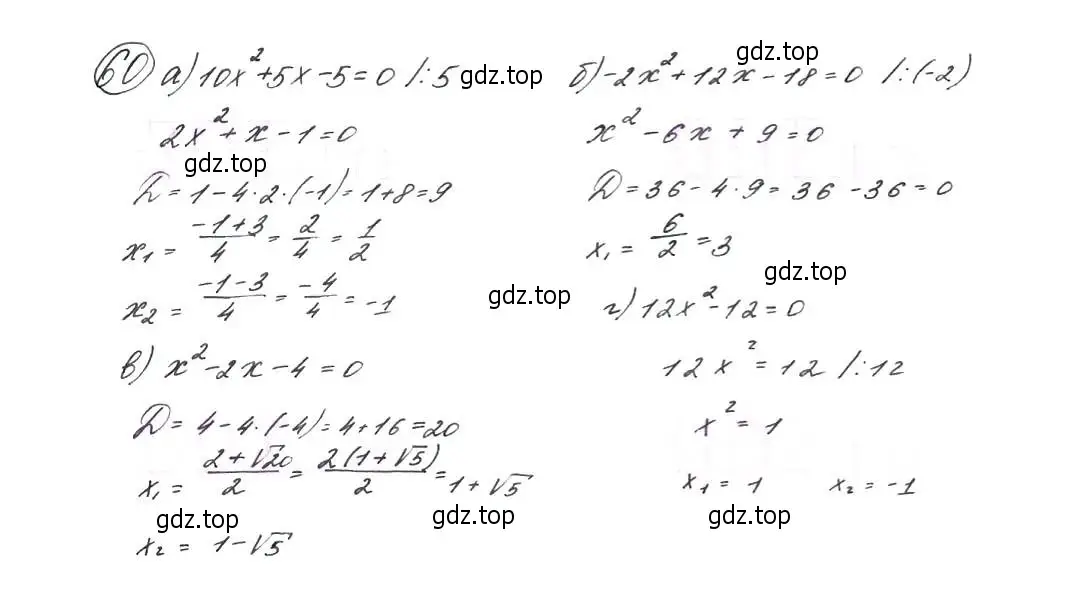 60 а) 10x² + 5x - 5 = 0 /: 5 gdz.top
2x² + x - 1 = 0
gdz.top
D = 1 - 4 · 2 · (-1) = 1 + 8 = 9
x₁ = (-1+3)/4 = 2/4 = 1/2
x₂ = (-1-3)/4 = -4/4 = -1
gdz.top
б) -2x² + 12x - 18 = 0 /: (-2)
gdz.top
x² - 6x + 9 = 0
D = 36 - 4 · 9 = 36 - 36 = 0
x₁ = 6/2 = 3
gdz.top
в) x² - 2x - 4 = 0
D = 4 - 4 · (-4) = 4 + 16 = 20
x₁ = (2+√20)/2 = 2(1+√5)/2 = 1 + √5
gdz.top gdz.top
x₂ = 1 - √5
г) 12x² - 12 = 0
12x² = 12 /: 12
x² = 1
x₁ = 1 x₂ = -1
gdz.top